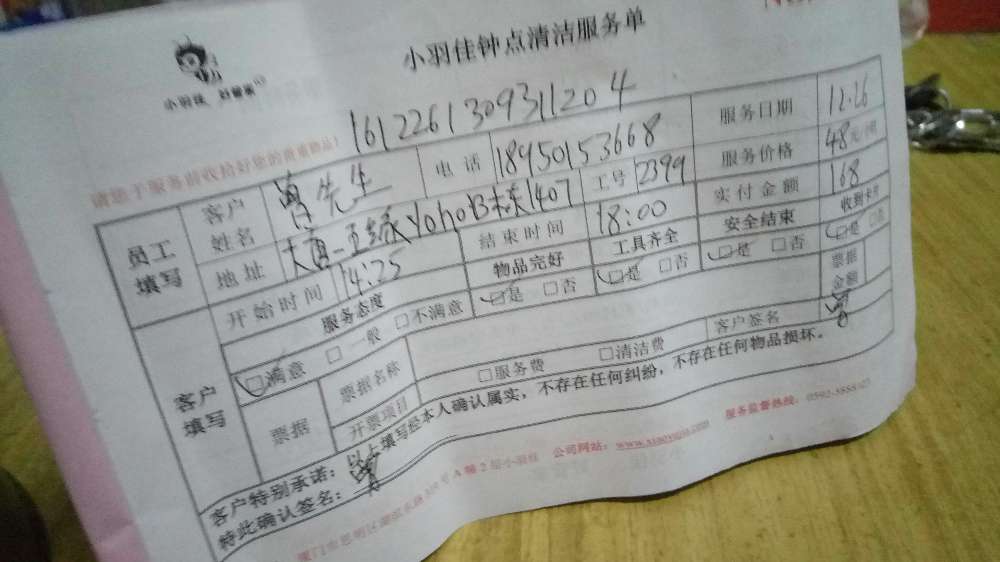 小羽佳钟点清洁服务单
小羽佳 好管家
16122613093112004
请您于服务前收拾好您的贵重物品!
员工填写 客户姓名 曾先生 电话 18950153668 服务日期 12.26
地址 Yoho B栋1407 工号 2399 服务价格 48元/
开始时间 14:25 结束时间 18:00 实付金额 168
客户填写 服务态度 物品完好 工具齐全 安全结束 收到卡片
☑满意 □一般 □不满意 ☑是 □否 ☑是 □否 ☑是 □否 ☑是 □否
票据 票据名称 □服务费 □清洁费 票据金额
开票项目 客户签名 曾
客户特别承诺：以上填写经本人确认属实，不存在任何纠纷，不存在任何物品损坏。
特此确认签名：曾
厦门市思明区 A幢2层小羽佳 公司网站：www.xiaoyujia.com 服务监督热线：0592-5555